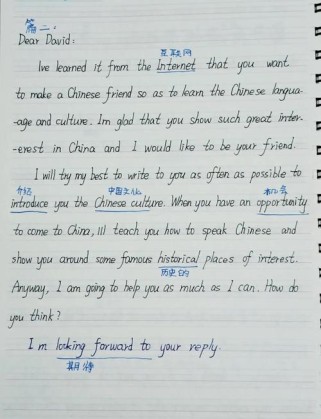 篇二:
Dear David:
互联网
Ive learned it from the Internet that you want
to make a Chinese friend so as to learn the Chinese langua-
-age and culture. Im glad that you show such great inter-
-erest in China and I would like to be your friend.
I will try my best to write to you as often as possible to
介绍 中国文化 机会
introduce you the Chinese culture. When you have an opportunity
to come to China, Ill teach you how to speak Chinese and
show you around some famous historical places of interest.
历史的
Anyway, I am going to help you as much as I can. How do
you think?
I m looking forward to your reply.
期待